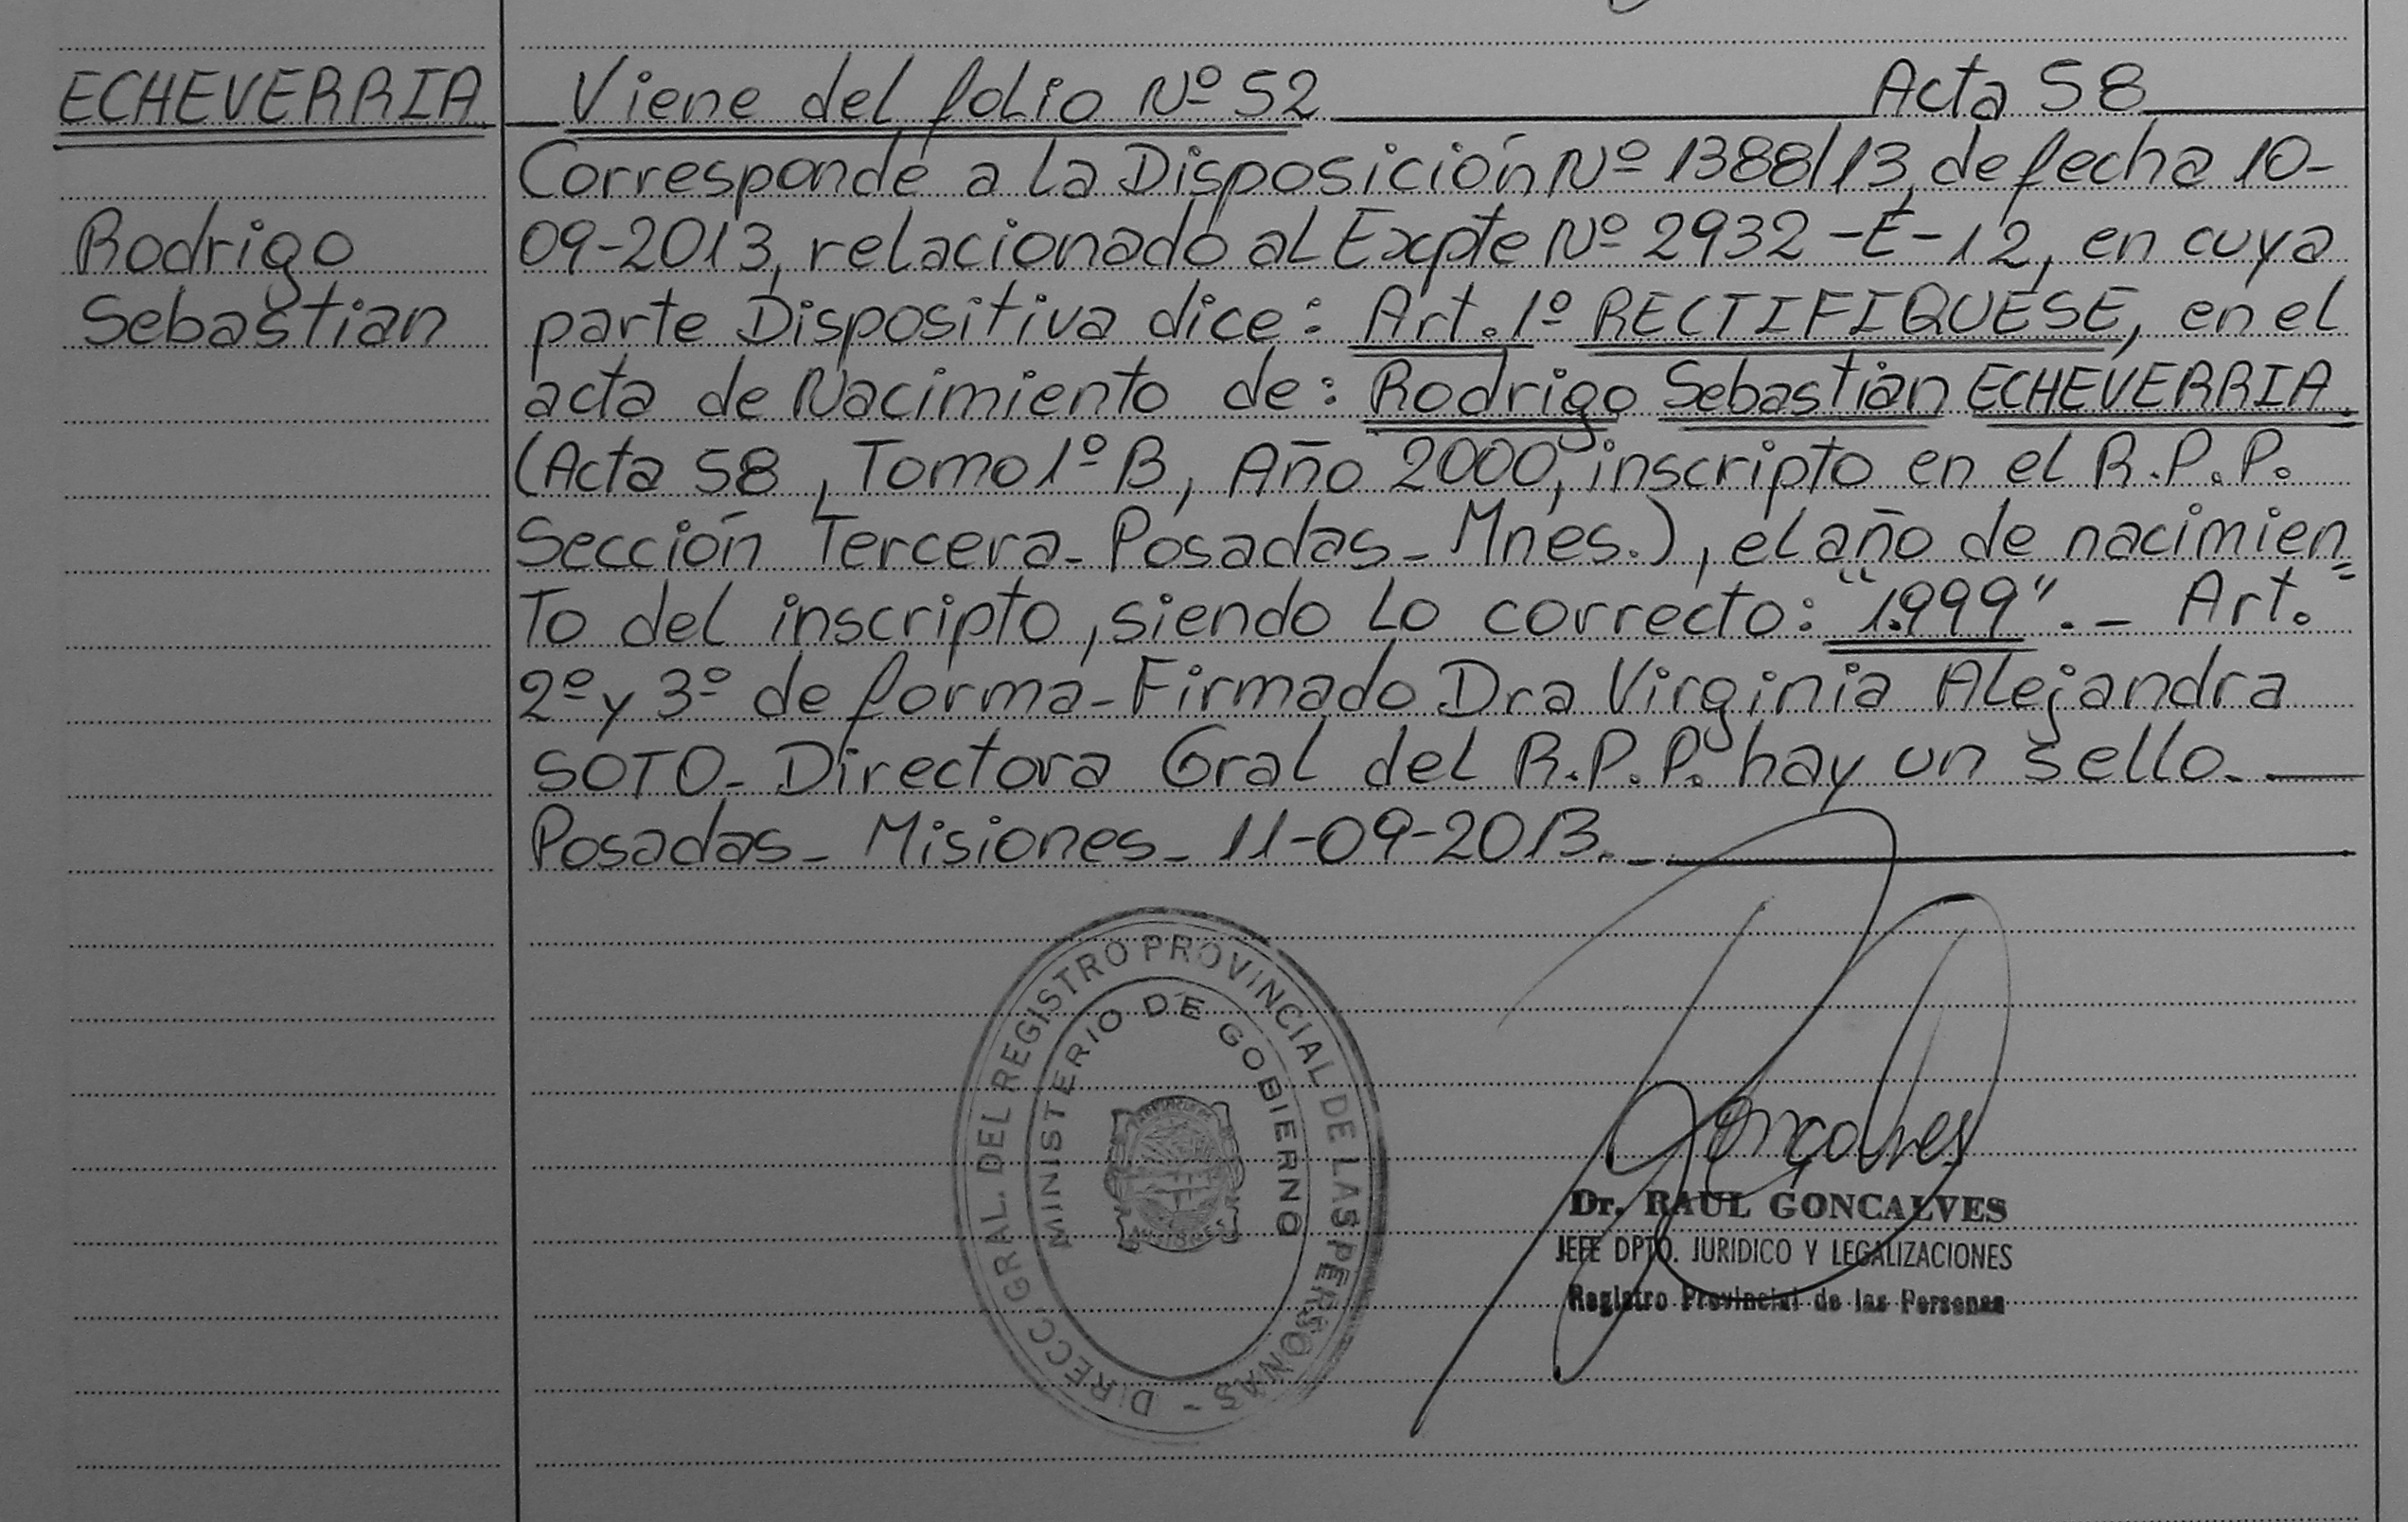 ECHEVERRIA
Rodrigo
Sebastian
Viene del folio Nº 52 Acta 58
Corresponde a la Disposición Nº 1388/13, de fecha 10-
09-2013, relacionado al Expte Nº 2932-E-12, en cuya
parte Dispositiva dice: Art. 1º RECTIFIQUESE, en el
acta de Nacimiento de: Rodrigo Sebastian ECHEVERRIA
(Acta 58, Tomo 1º B, Año 2000, inscripto en el R.P.P.
Sección Tercera- Posadas- Mnes.), el año de nacimien=
to del inscripto, siendo lo correcto: "1.999".- Art.
2º y 3º de forma- Firmado Dra Virginia Alejandra
SOTO- Directora Gral del R.P.P. hay un sello.-
Posadas- Misiones- 11-09-2013.-
DIRECC. GRAL. DEL REGISTRO PROVINCIAL DE LAS PERSONAS -
MINISTERIO DE GOBIERNO
PROVINCIA DE
MISIONES
Gonçalves
Dr. RAUL GONCALVES
JEFE DPTO. JURIDICO Y LEGALIZACIONES
Registro Provincial de las Personas